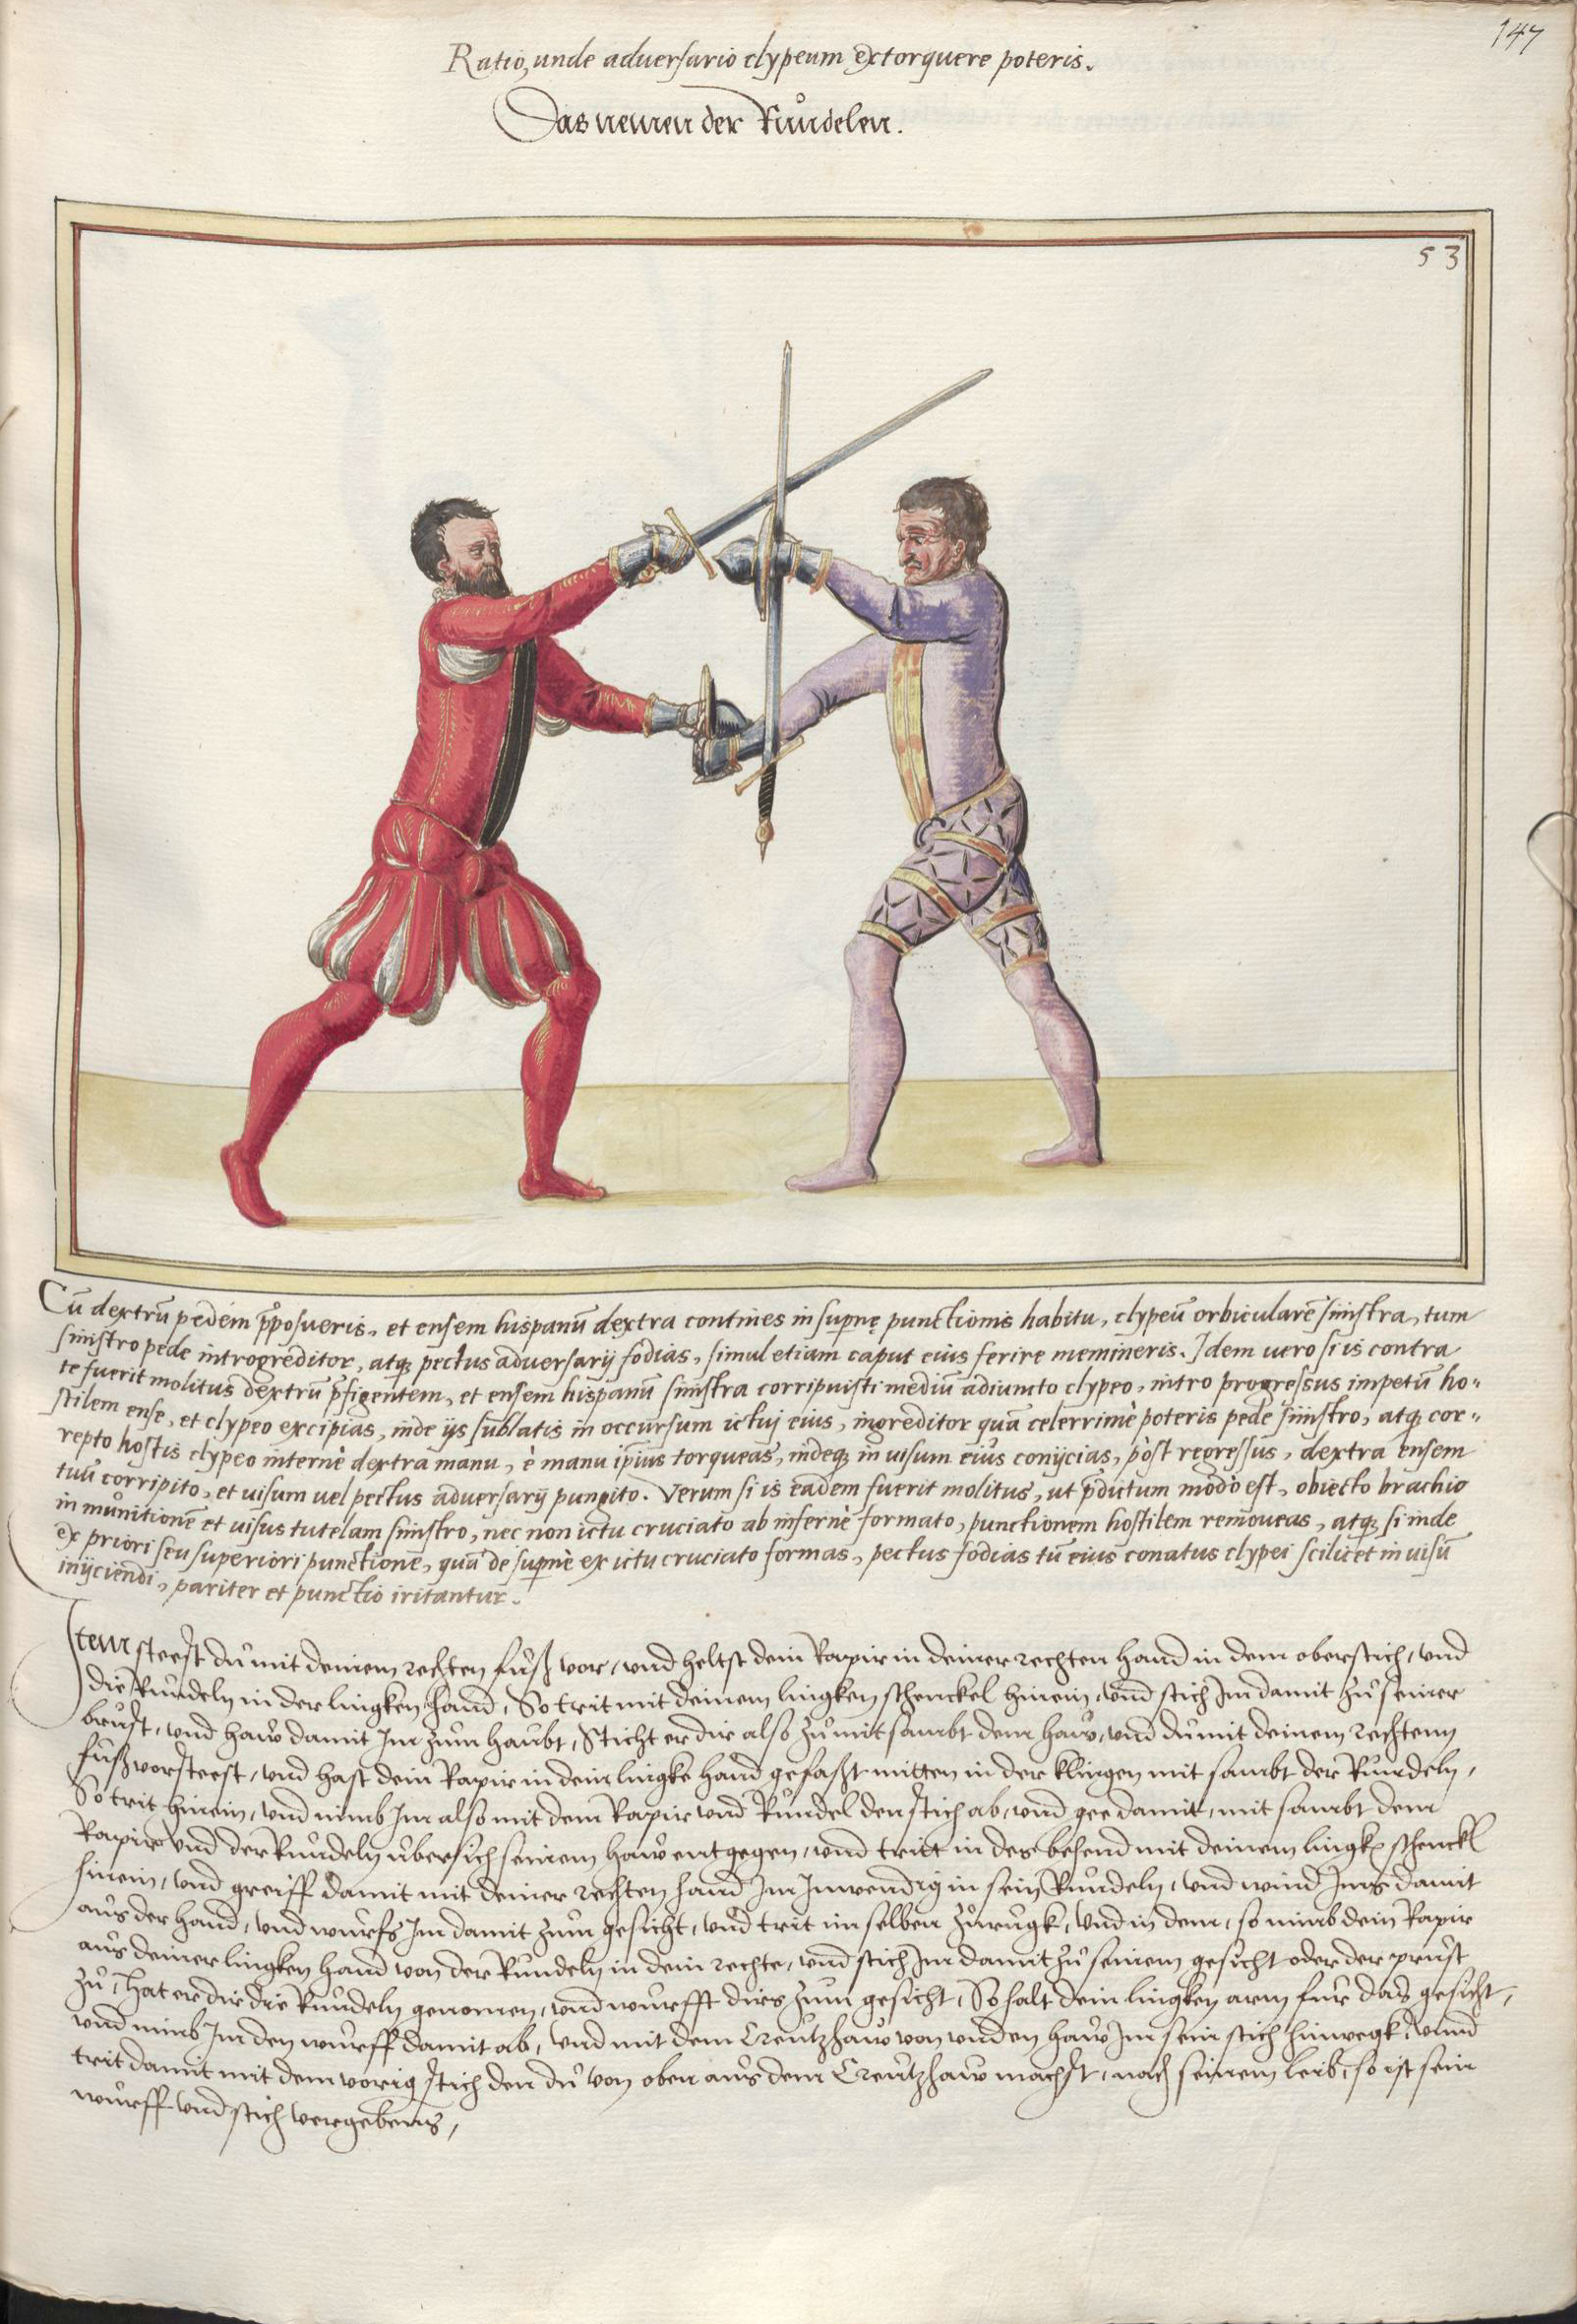 147
Ratio, unde adversario clypeum extorquere poteris.
Das nemen der Růndelen.
53
Cū dextrū pedem p̄posueris, et ensem hispanū dextra contines in supernę punctionis habitu, clypeū orbicularē sinistra, tum
sinistro pede introgreditor, atq; pectus adversarij fodias, simul etiam caput eius ferire memineris. Idem vero si is contra
te fuerit molitus dextrū p̄figentem, et ensem hispanū sinistra corripuisti mediū adiuncto clypeo, intro progressus impetū ho-
stilem ense, et clypeo excipias, inde ijs sublatis in occursum ictuj eius, ingreditor quā celerrimè poteris pede sinistro, atq; cor-
repto hostis clypeo internè dextra manu, è manu ipsius torqueas, indeq; in visum eius conijcias, pòst regressus, dextra ensem
tuū corripito, et visum vel pectus adversarij pungito. Verum si is eadem fuerit molitus, ut p̄dictum modò est, obiecto brachio
in munitionē et visus tutelam sinistro, nec non ictu cruciato ab infernè formato, punctionem hostilem removeas, atq; si inde
ex priori seu superiori punctione, quā de supernè ex ictu cruciato formas, pectus fodias tū eius conatus clypei scilicet in visū
inijciendi, pariter et punctio iritantur.
Item steest dů mit deinem rechten fůß vor, und heltst dein Rapir in deiner rechten hand in dem oberstich, und
die Růndeln in der lingken hand, So trit mit deinem lingken schenckel hinein, und stich Im damit zů seiner
brůst, und haw damit Im zům haubt, Sticht er dir also zů mit sambt dem haw, und dů mit deinem rechtenn
fůß vorsteest, und hast dein Rapir in dein lingke hand gefaßt mitten in der klingen mit sambt der Růndeln,
So trit hinein, und nimb Im also mit dem Rapir und Růndel den stich ab, und gee damit, mit sambt dem
Rapir und der Růndeln übersich seinem haw entgegen, und tritt in des behend mit deinem lingkn schenckl
hinein, und greiff damit mit deiner rechten hand Im Inwendig in sein Růndeln, und wind Ims damit
aůs der hand, und wůrfs Im damit zům gesicht, und trit im selben zůrůgk, und in dem, so nimb dein Rapir
aůs deiner lingken hand von der Růndeln in dein rechte, und stich Im damit zů seinem gesicht oder der průst
zů, Hat er dir die Růndeln genomen, und wůrfft dirs zům gesicht, So halt dein lingken arm für das gesicht,
und nimb Im den wůrff damit ab, und mit dem Creůtzhaw von unden haw Im sein stich hinwegk, unnd
trit damit mit dem vorig stich den dů von oben aůs dem Creůtzhaw machst, nach seinem leib, so ist sein
wůrff und stich vergebens,